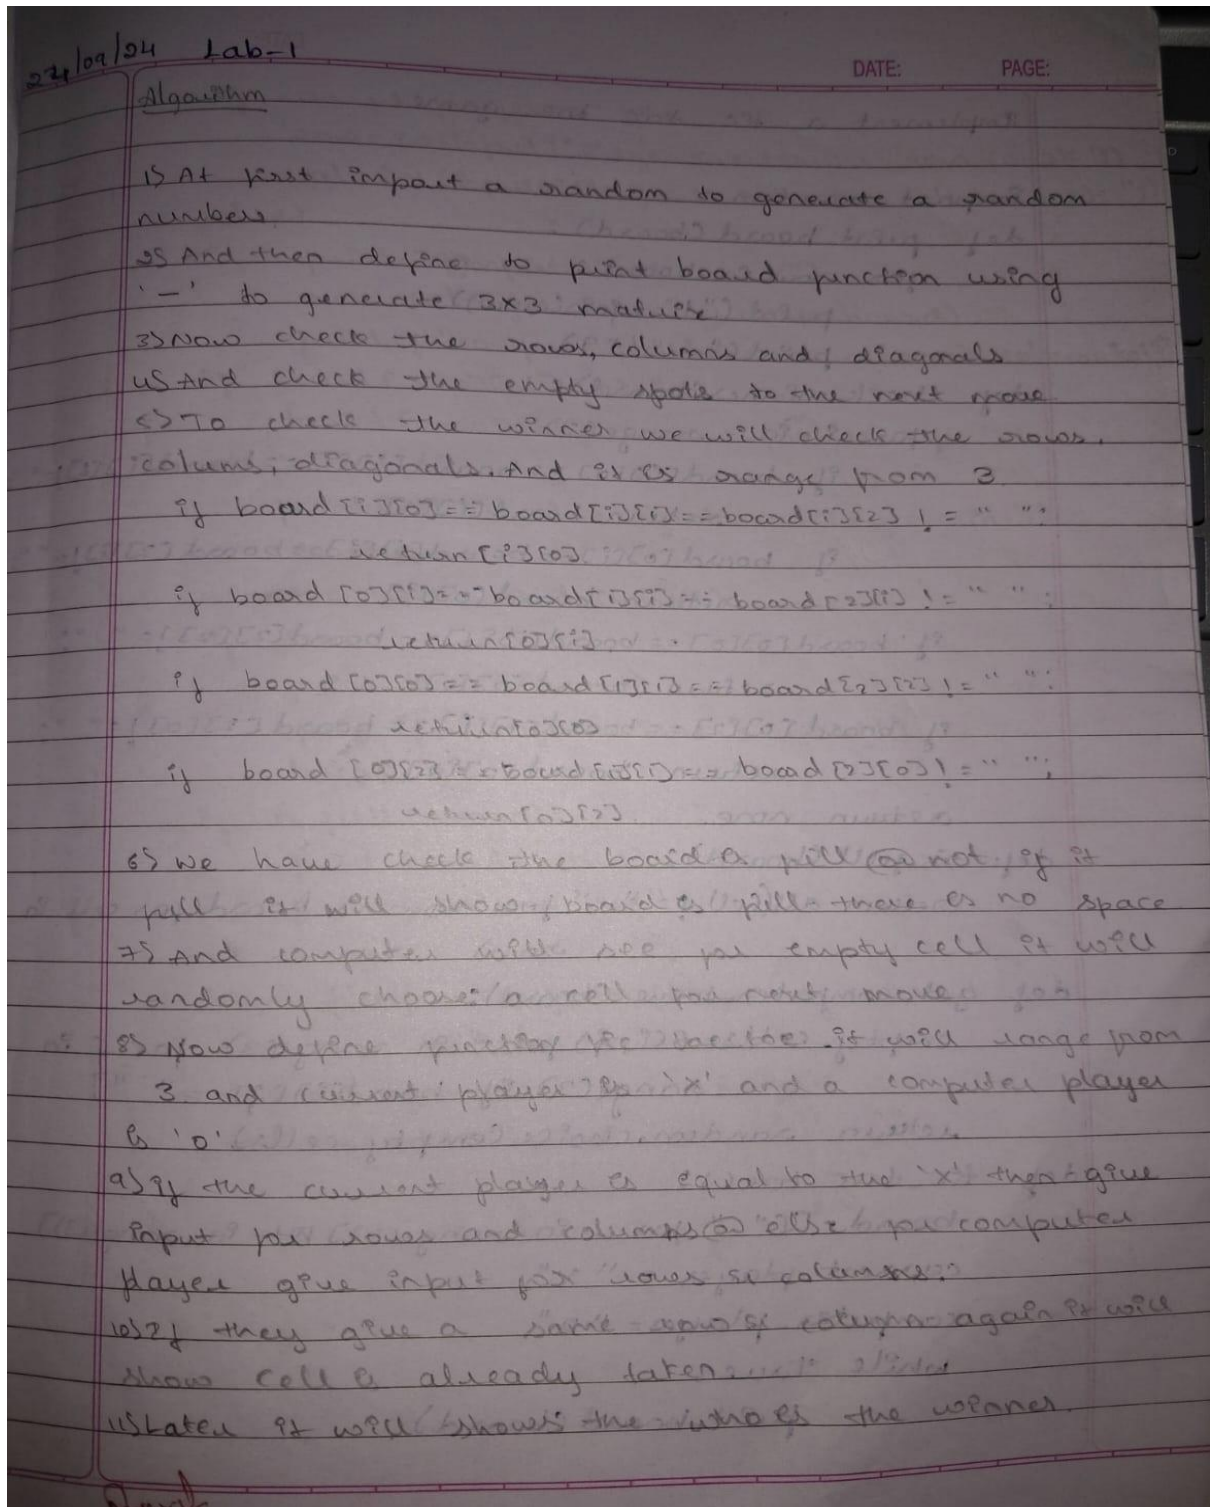 24/09/24 Lab-1
DATE: PAGE:
Algorithm
1) At first import a random to generate a random
number
2) And then define to print board function using
'-' to generate 3x3 matrix
3) Now check the rows, columns and diagonals
4) And check the empty spots to the next move
5) To check the winner we will check the rows,
colums, diagonals. And it is range from 3
if board [i][0] == board[i][1] == board[i][2] != " ":
return [i][0]
if board [0][i] == board[1][i] == board[2][i] != " ":
return[0][i]
if board [0][0] == board[1][1] == board[2][2] != " ":
return[0][0]
if board [0][2] == board[1][1] == board [2][0] != " ":
return[0][2]
6) We have check the board is fill or not, if it
full it will show board is fill there is no space
7) And computer will see for empty cell it will
randomly choose a cell for next move
8) Now define function tic tac toe. it will range from
3 and current player is 'x' and a computer player
is 'o'
9) if the current player is equal to the 'x' then give
input for rows and columns or else for computer
player give input for rows & columns.
10) If they give a same row & column again it will
show cell is already taken
11) Later it will shows the who is the winner.